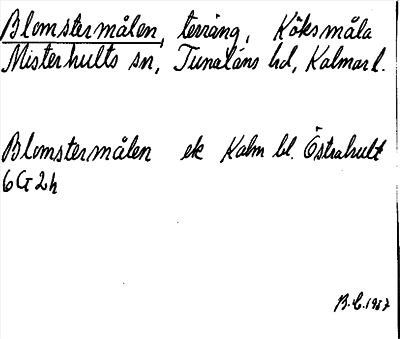 Blomstermålen, terräng, Köksmåla
Misterhults sn, Tunaläns hd, Kalmar l.
Blomstermålen ek Kalm bl. Östrahult
6G2h
B.L. 1967